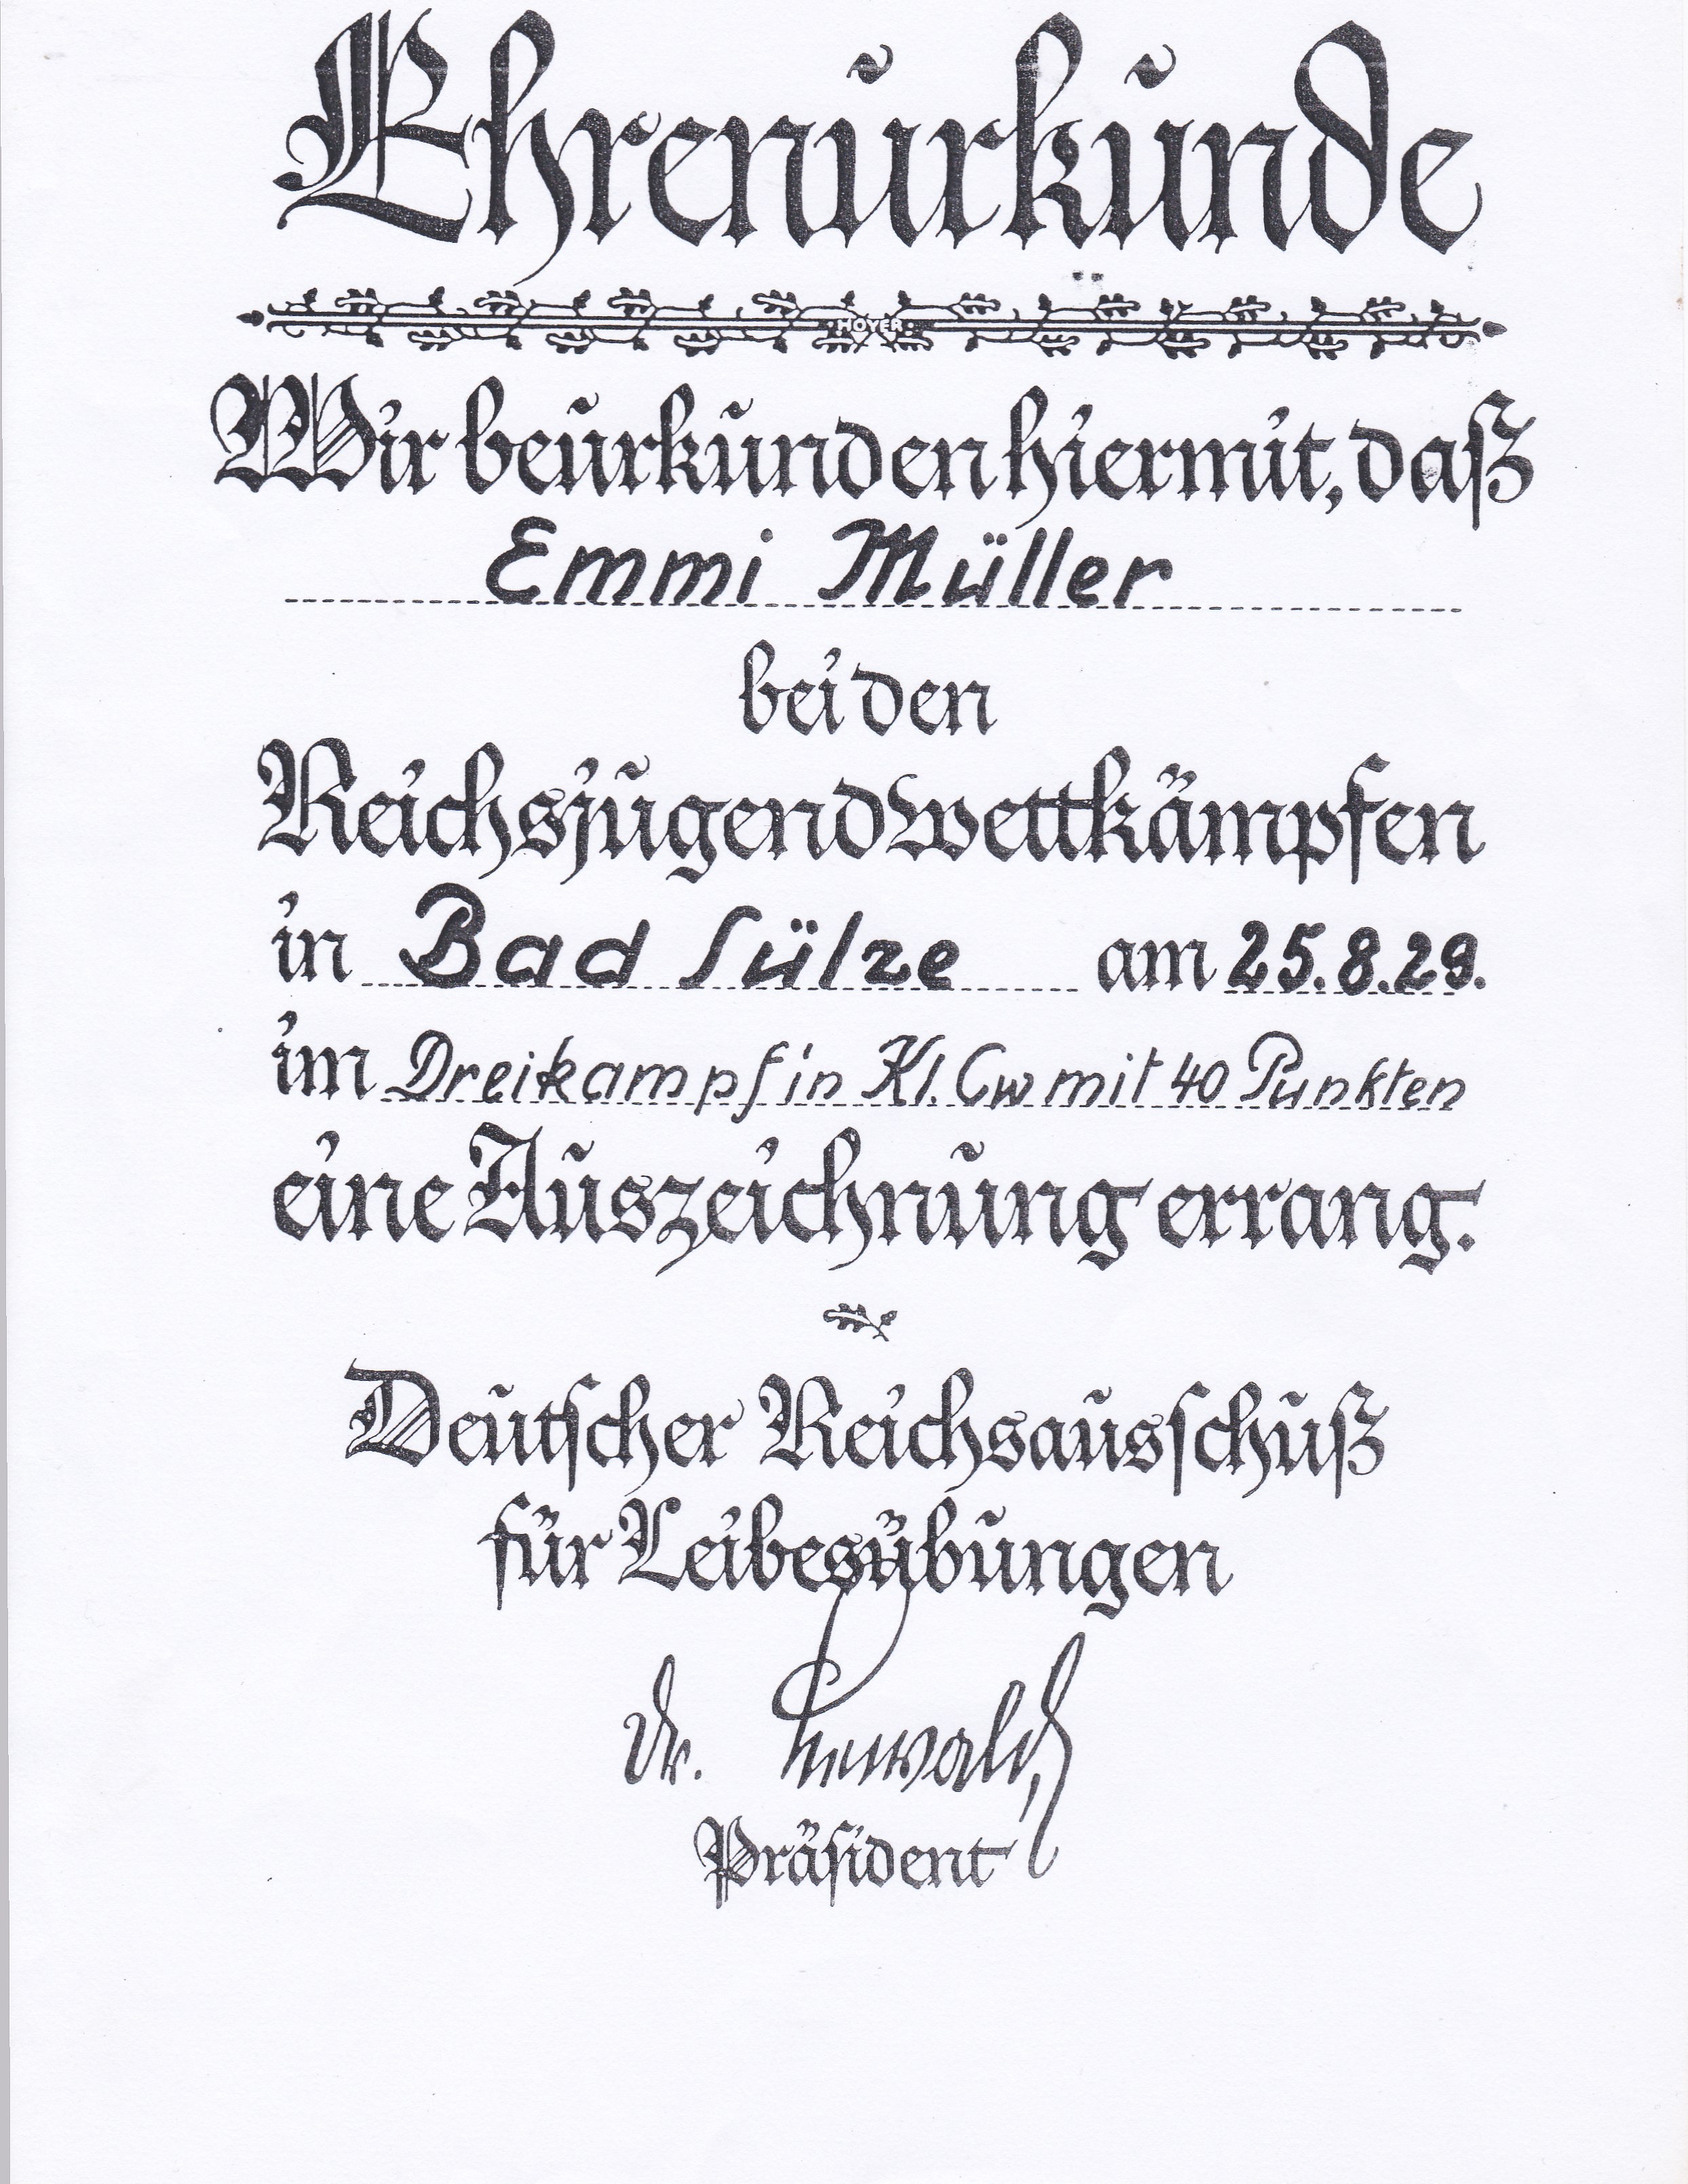 Ehrenurkunde
HOYER
Wir beurkunden hiermit, daß
Emmi Müller
bei den
Reichsjugendwettkämpfen
in Bad Sülze am 25.8.29.
im Dreikampf in Kl. Cw mit 40 Punkten
eine Auszeichnung errang.
Deutscher Reichsausschuß
für Leibesübungen
Dr. Lewald
Präsident